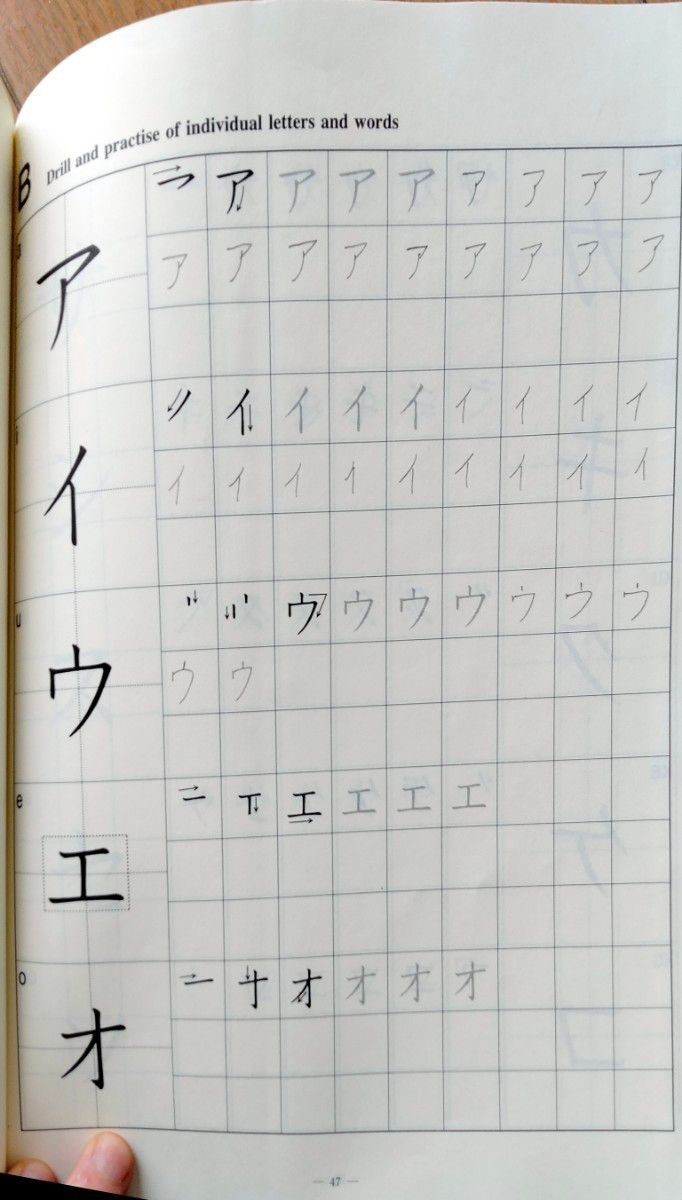 B Drill and practise of individual letters and words
a
ア
ア ア ア ア ア ア ア ア
ア ア ア ア ア ア ア ア ア
i
イ
イ イ イ イ イ イ イ イ
イ イ イ イ イ イ イ イ イ
u
ウ
ウ ウ ウ ウ ウ ウ ウ
ウ ウ
e
エ
エ エ エ エ
o
オ
オ オ オ オ
— 47 —